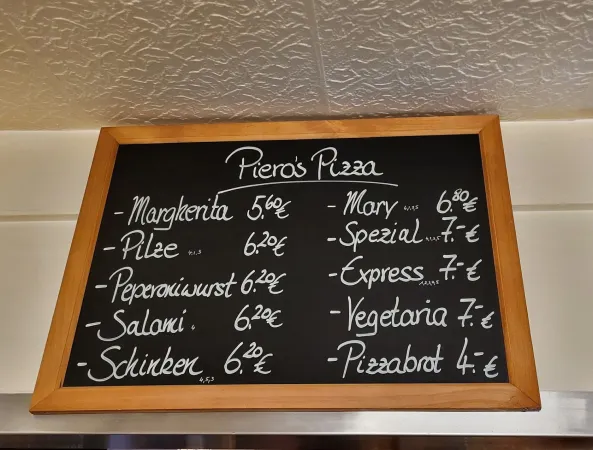 Piero's Pizza
- Margherita 5.60€
- Pilze 6.20€
- Peperoniwurst 6.20€
- Salami 6.20€
- Schinken 6.20€
- Mary 6.80€
- Spezial 7.-€
- Express 7.-€
- Vegetaria 7.-€
- Pizzabrot 4.-€